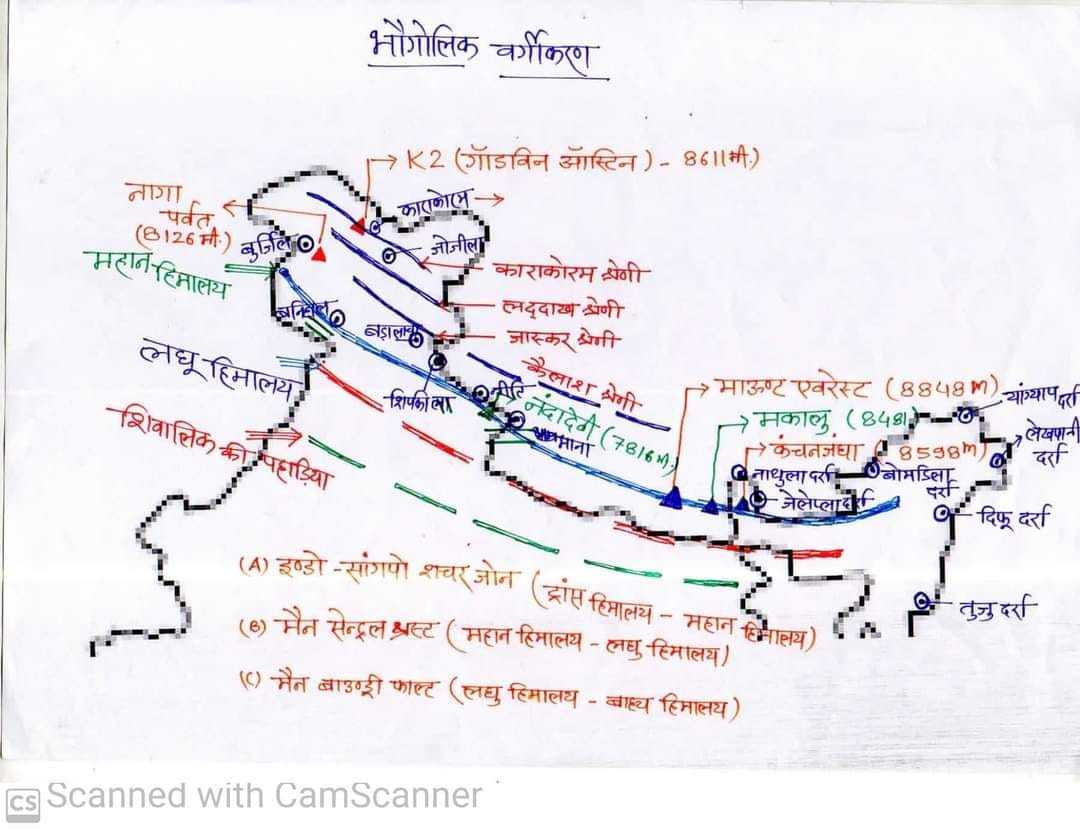 भौगोलिक वर्गीकरण
K2 (गॉडविन ऑस्टिन) - 8611मी.)
नागा
पर्वत
(8126मी.)
काराकोरम
बुर्जिल
जोजीला
महान हिमालय
काराकोरम श्रेणी
लद्दाख श्रेणी
बनिहाल
बड़ालाचा
जास्कर श्रेणी
लघु हिमालय
कैलाश श्रेणी
शिपकीला
नीति
माऊण्ट एवरेस्ट (8848m)
यांग्याप दर्रा
नंदादेवी (7816m)
मकालु (8481)
शिवालिक की पहाड़िया
माना
कंचनजंघा (8598m)
लेखपानी
दर्रा
नाथुला दर्रा
बोमडिला
दर्रा
जेलेप्ला दर्रा
दिफू दर्रा
(A) इण्डो - सांगपो शचर जोन (ट्रांस हिमालय - महान हिमालय)
तुजु दर्रा
(B) मैन सेन्ट्रल थ्रस्ट (महान हिमालय - लघु हिमालय)
(C) मैन बाउण्ड्री फाल्ट (लघु हिमालय - बाह्य हिमालय)
CS Scanned with CamScanner